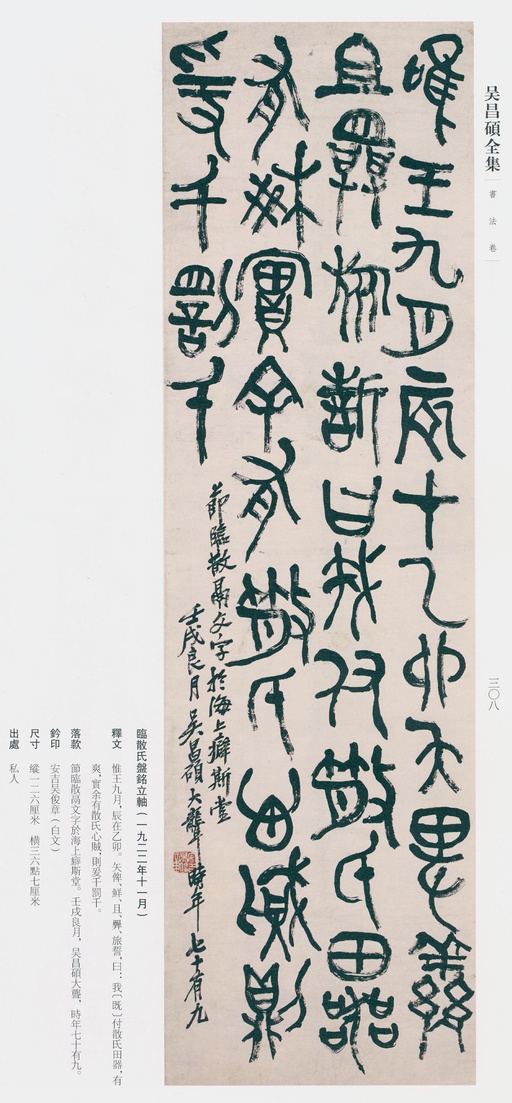 吴昌碩全集
書法卷
三〇八
唯王九月辰才乙卯矢卑鮮
且𢍰旅誓曰我付散氏田器
有爽實余有散氏心賊則
爰千罰千
節臨散鬲文字於海上癖斯堂
壬戌良月吴昌碩大聾時年七十有九
臨散氏盤銘立軸（一九二二年十一月）
釋文 惟王九月，辰在乙卯。矢俾、鮮、且、𢍰、旅誓，曰：我〔既〕付散氏田器，有
爽，實余有散氏心賊，則爰千罰千。
落款 節臨散鬲文字於海上癖斯堂。壬戌良月，吴昌碩大聾，時年七十有九。
鈐印 安吉吴俊章（白文）
尺寸 縱一二六厘米 横三六點七厘米
出處 私人